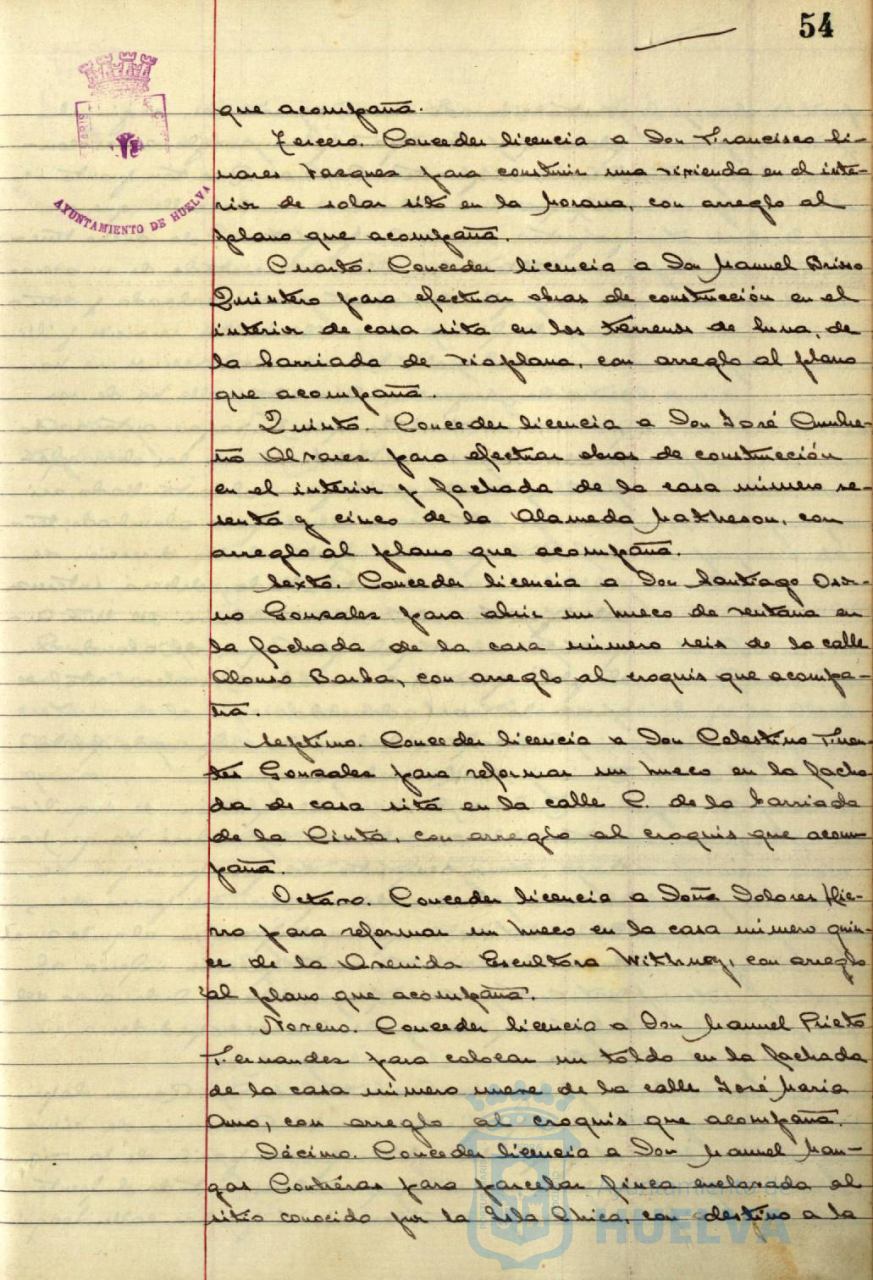 54
AYUNTAMIENTO DE HUELVA
que acompaña.
Tercero. Conceder licencia a Don Francisco Li-
nares Vazquez para construir una vivienda en el inte-
rior de solar sito en la Morana, con arreglo al
plano que acompaña.
Cuarto. Conceder licencia a Don Manuel
Quintero para efectuar obras de construcción en el
interior de casa sita en los terrenos de Luna, de
la barriada de Viaplana, con arreglo al plano
que acompaña.
Quinto. Conceder licencia a Don José Cumbre-
ño Alvarez para efectuar obras de construcción
en el interior y fachada de la casa número se-
senta y cinco de la Alameda Matheson, con
arreglo al plano que acompaña.
Sexto. Conceder licencia a Don Santiago Osor-
no Gonzalez para abrir un hueco de ventana en
la fachada de la casa número seis de la calle
Alonso Barba, con arreglo al croquis que acompa-
ña.
Septimo. Conceder licencia a Don Celestino Fuen-
tes Gonzalez para reformar un hueco en la facha
da de casa sita en la calle C. de la barriada
de la Cinta, con arreglo al croquis que acom-
paña.
Octavo. Conceder licencia a Doña Dolores Hie-
rro para reformar un hueco en la casa número quin-
ce de la Avenida Escultora Withney, con arreglo
al plano que acompaña.
Noveno. Conceder licencia a Don Manuel Prieto
Fernandez para colocar un toldo en la fachada
de la casa número nueve de la calle José Maria
Amo, con arreglo al croquis que acompaña.
Décimo. Conceder licencia a Don Manuel Man-
gas Contréras para parcelar finca enclavada al
sitio conocido por la Isla Chica, con destino a la
Ayuntamiento de
HUELVA